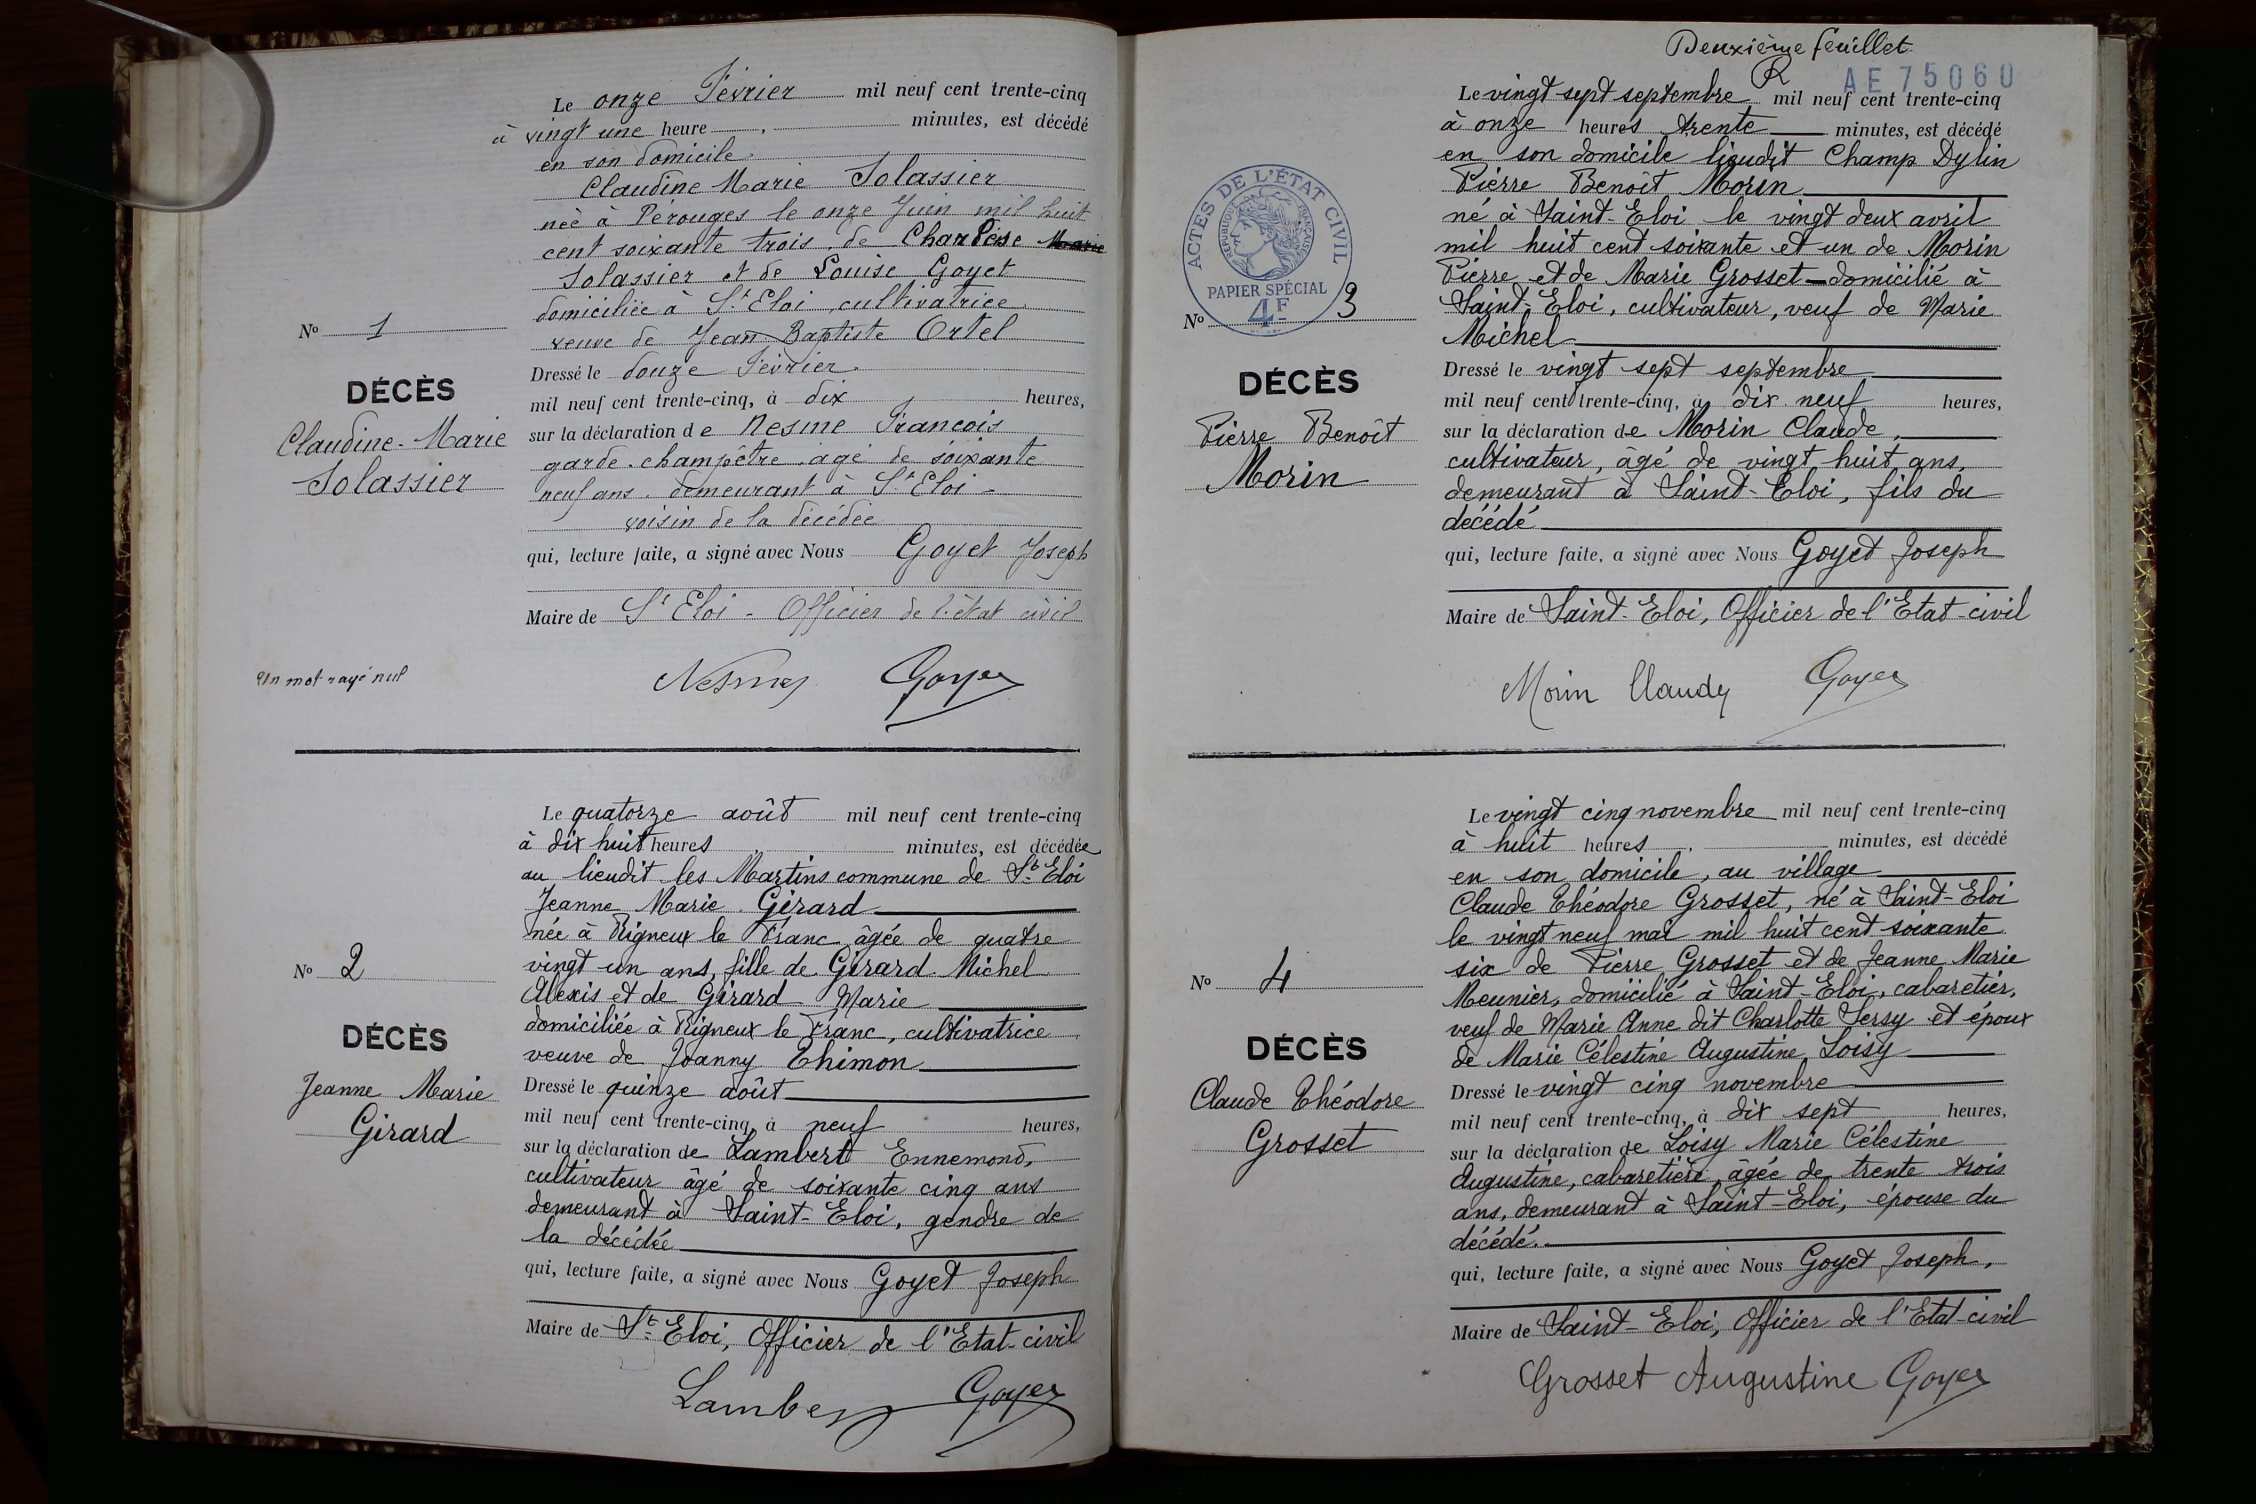 Le onze Février mil neuf cent trente-cinq
à vingt une heure minutes, est décédé
en son domicile
Claudine Marie Solassier
née à Pérouges le onze Juin mil huit
cent soixante trois, de
Solassier et de Louise Goyet
domiciliée à St Eloi, cultivatrice
veuve de Jean Baptiste Ortel
Dressé le douze Février
mil neuf cent trente-cinq, à dix heures,
sur la déclaration de Nesme François
garde-champêtre, agé de soixante
neuf ans, demeurant à St Eloi -
voisin de la décédée
qui, lecture faite, a signé avec Nous Goyet Joseph
Maire de St Eloi - Officier de l'état civil
No 1
DÉCÈS
Claudine-Marie
Solassier
Un mot rayé nul
Nesme Goyet
Le quatorze août mil neuf cent trente-cinq
à dix huit heures minutes, est décédée
au lieudit les Martins commune de St Eloi
Jeanne Marie Girard
née à Rigneux le Franc âgée de quatre
vingt un ans, fille de Girard Michel
Alexis et de Girard Marie
domiciliée à Rigneux le Franc, cultivatrice
veuve de Joanny Thimon
Dressé le quinze août
mil neuf cent trente-cinq, à neuf heures,
sur la déclaration de Lambert Ennemond,
cultivateur âgé de soixante cinq ans
demeurant à Saint-Eloi, gendre de
la décédée
qui, lecture faite, a signé avec Nous Goyet Joseph
Maire de St Eloi, Officier de l'Etat-civil
No 2
DÉCÈS
Jeanne Marie
Girard
Lambert Goyet
Deuxième feuillet
R
AE 75060
Le vingt sept septembre mil neuf cent trente-cinq
à onze heures trente minutes, est décédé
en son domicile lieudit Champ Dylin
Pierre Benoît Morin
né à Saint-Eloi le vingt deux avril
mil huit cent soixante et un de Morin
Pierre et de Marie Grosset - domicilié à
Saint-Eloi, cultivateur, veuf de Marie
Michel
Dressé le vingt sept septembre
mil neuf cent trente-cinq, à dix neuf heures,
sur la déclaration de Morin Claude,
cultivateur, âgé de vingt huit ans,
demeurant à Saint-Eloi, fils du
décédé
qui, lecture faite, a signé avec Nous Goyet Joseph
Maire de Saint-Eloi, Officier de l'Etat-civil
ACTES DE L'ÉTAT CIVIL
RÉPUBLIQUE FRANÇAISE
PAPIER SPÉCIAL
4F
No 3
DÉCÈS
Pierre Benoît
Morin
Morin Claude Goyet
Le vingt cinq novembre mil neuf cent trente-cinq
à huit heures minutes, est décédé
en son domicile, au village
Claude Théodore Grosset, né à Saint-Eloi
le vingt neuf mai mil huit cent soixante
six de Pierre Grosset et de Jeanne Marie
Meunier, domicilié à Saint-Eloi, cabaretier,
veuf de Marie Anne dit Charlotte Sersy et époux
de Marie Célestine Augustine Loisy
Dressé le vingt cinq novembre
mil neuf cent trente-cinq, à dix sept heures,
sur la déclaration de Loisy Marie Célestine
Augustine, cabaretière, âgée de trente trois
ans, demeurant à Saint-Eloi, épouse du
décédé.
qui, lecture faite, a signé avec Nous Goyet Joseph,
Maire de Saint-Eloi, Officier de l'Etat-civil
No 4
DÉCÈS
Claude Théodore
Grosset
Grosset Augustine Goyet